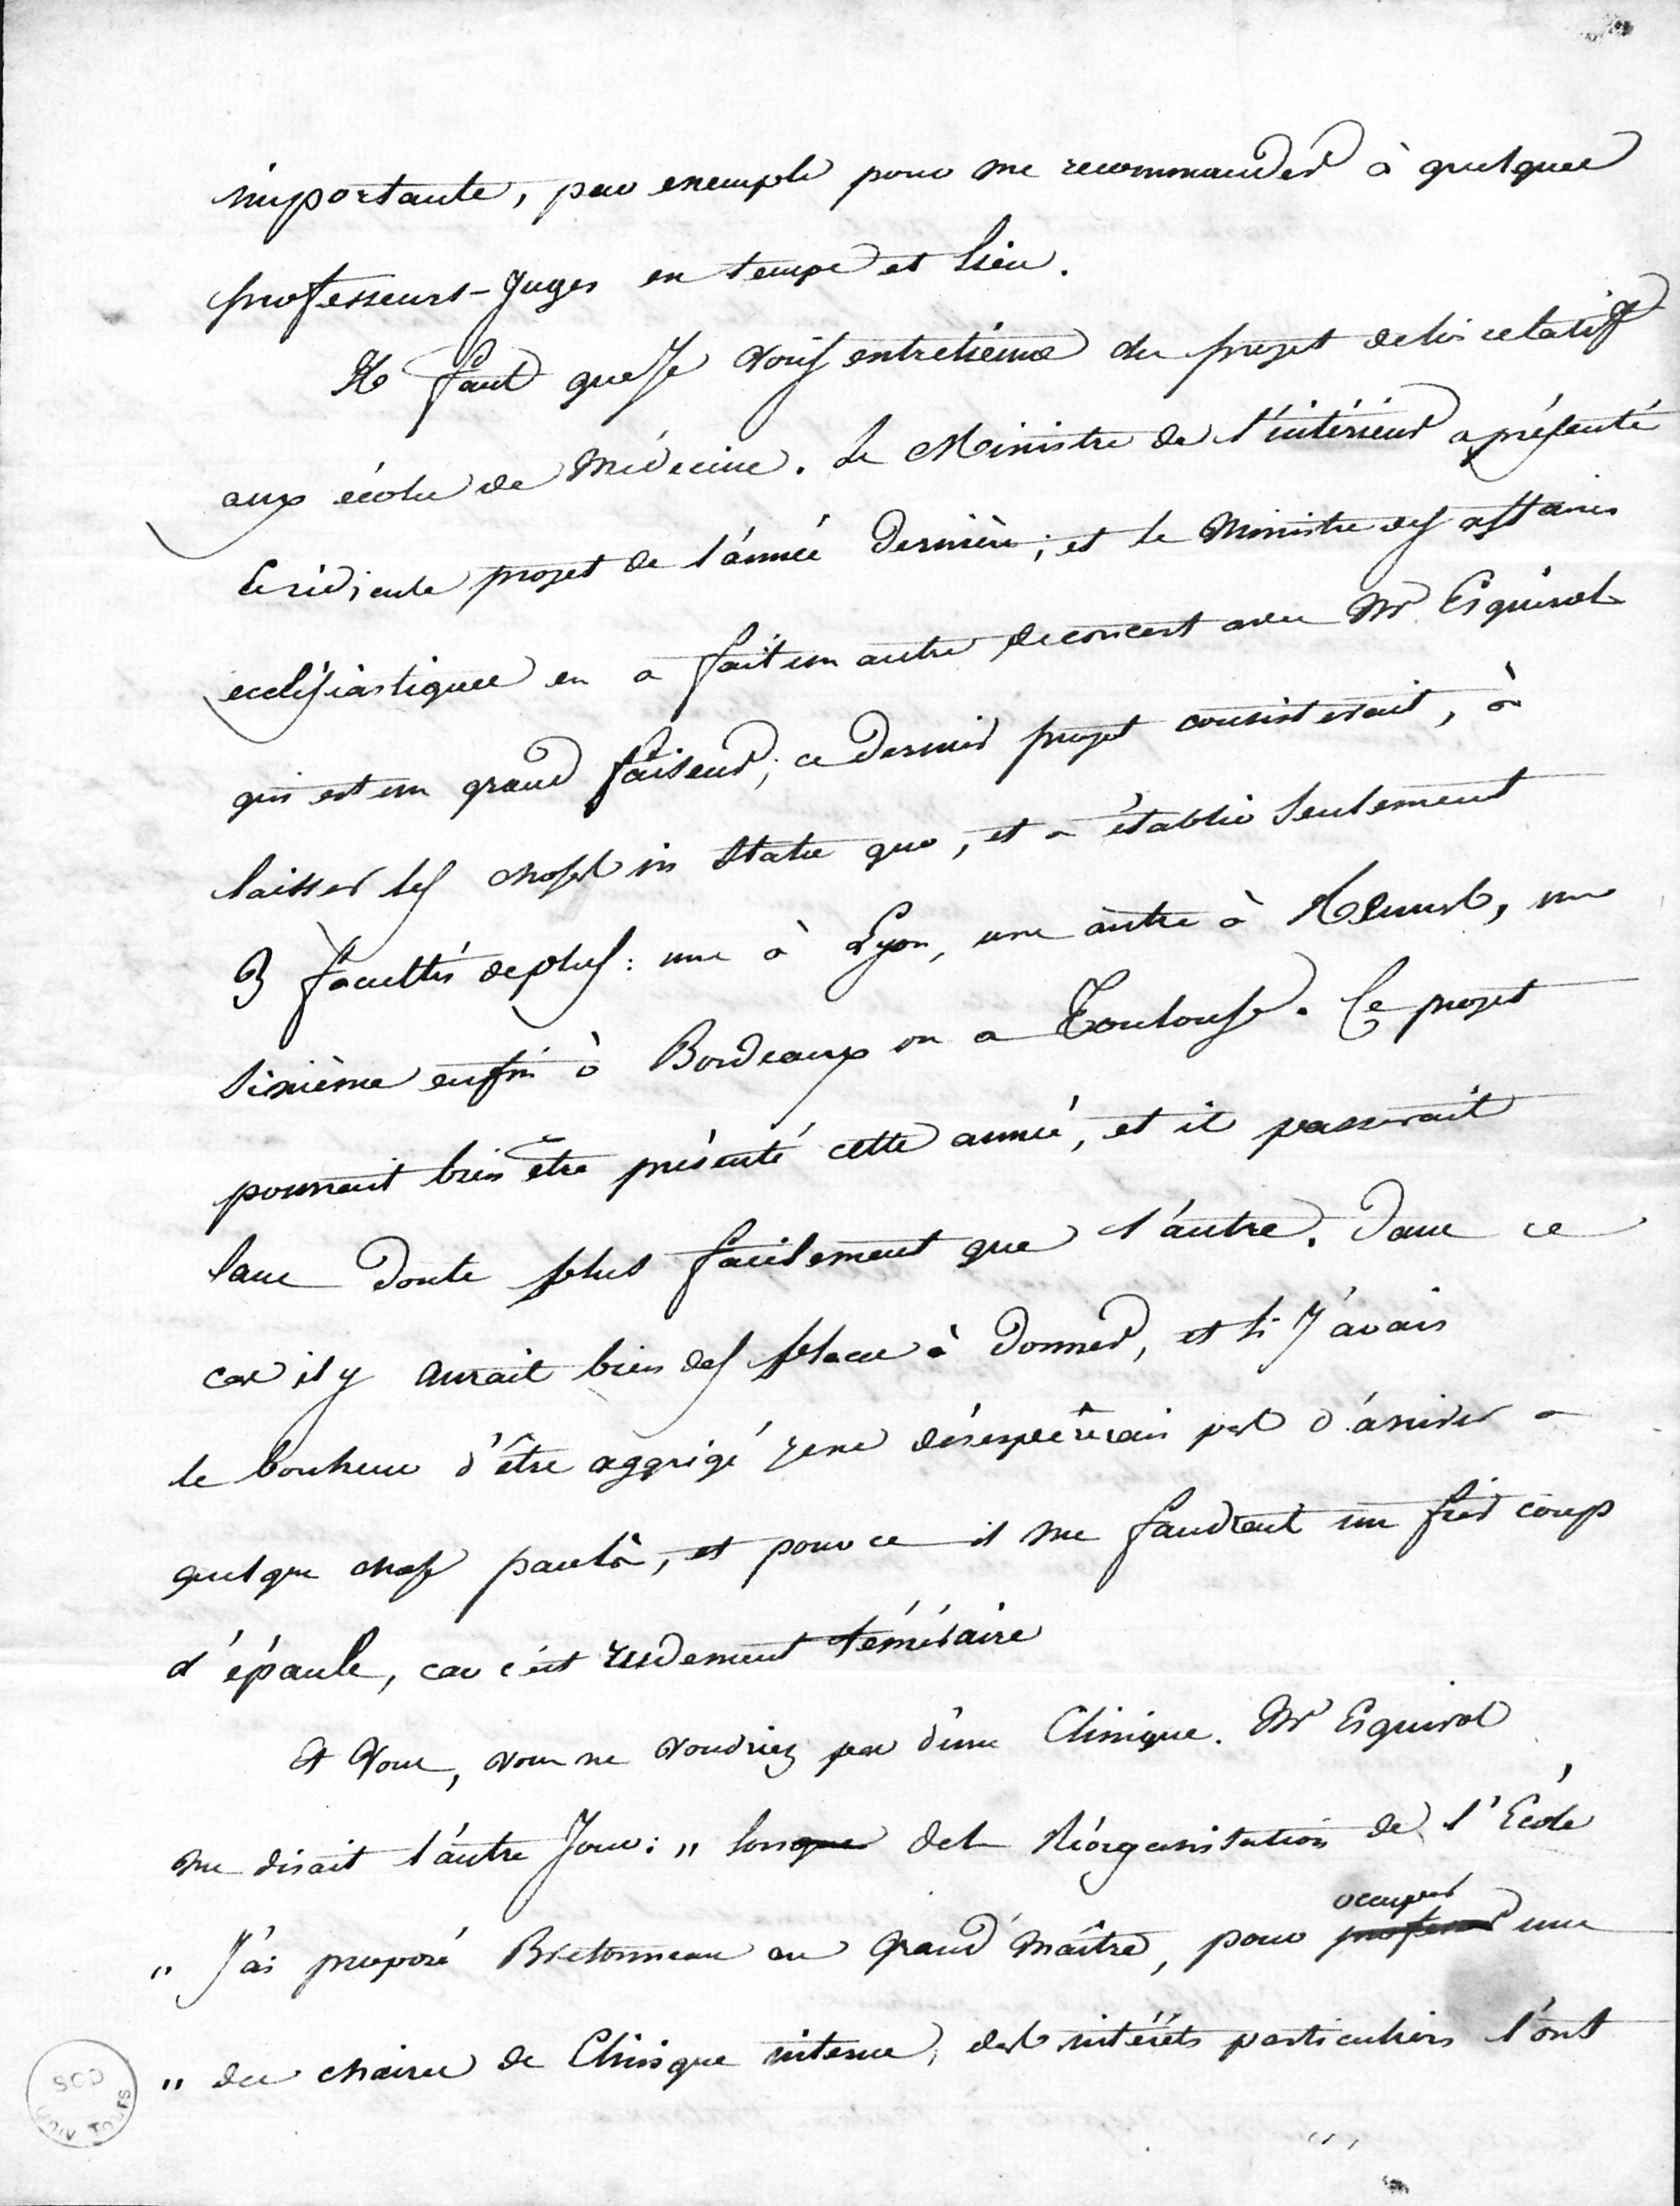 importante, par exemple pour me recommander à quelques
professeurs-Juges en temps et lieu.
Il faut que Je vous entretienne du projet de loi relatif
aux écoles de Médecine. Le Ministre de l'intérieur a présenté
le ridicule projet de l'année dernière; et le Ministre des affaires
ecclésiastiques en a fait un autre de concert avec Mr Esquirol
qui est un grand faiseur; ce dernier projet consisterait, à
laisser les choses in statu quo, et a établir seulement
3 facultés de plus: une à Lyon, une autre à Rennes, une
sixième enfin à Bordeaux ou a Toulouse. Ce projet
pourrait bien être présenté cette année, et il passerait
sans doute plus facilement que l'autre. Dans ce
cas il y aurait bien des places à donner, et si J'avais
le bonheur d'être aggrégé je ne désespèrerais pas d'arriver a
quelque chose par là, et pour ce il me faudrait un fier coup
d'épaule, car c'est rudement téméraire
Et vous, vous ne voudriez pas d'une Clinique. Mr Esquirol
me disait l'autre Jour: " lors de la Réorganisation de l'Ecole
" J'ai proposé Bretonneau au Grand maître, pour occuper une
" des chaires de Clinique interne, des intérêts particuliers l'ont
SCD
UNIV TOURS